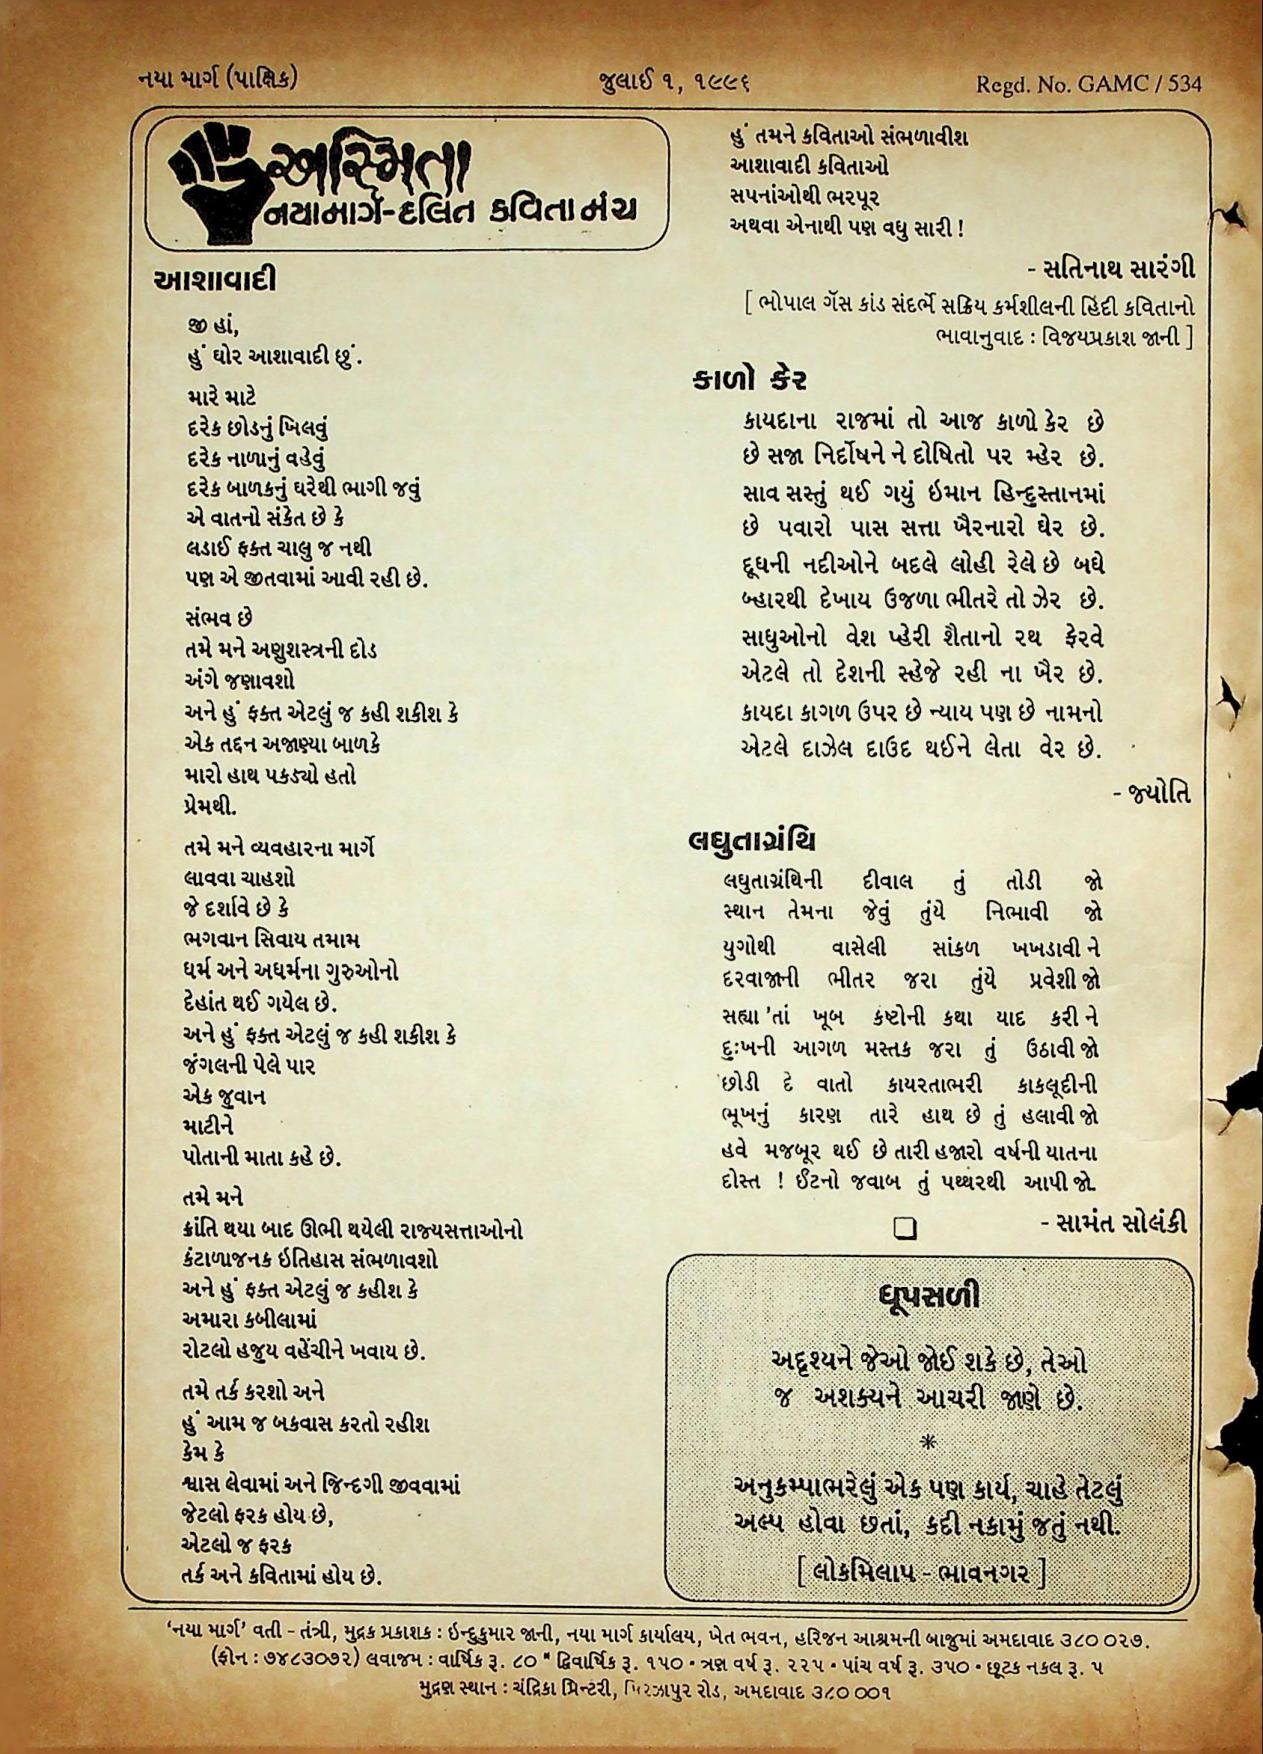 નયા માર્ગ (પાક્ષિક)
જુલાઈ ૧, ૧૯૯૬
Regd. No. GAMC / 534
અસ્મિતા
નયામાર્ગ-દલિત કવિતા મંચ
આશાવાદી
જી હાં,
હું ઘોર આશાવાદી છું.
મારે માટે
દરેક છોડનું ખિલવું
દરેક નાળાનું વહેવું
દરેક બાળકનું ઘરેથી ભાગી જવું
એ વાતનો સંકેત છે કે
લડાઈ ફક્ત ચાલુ જ નથી
પણ એ જીતવામાં આવી રહી છે.
સંભવ છે
તમે મને અણુશસ્ત્રની દોડ
અંગે જણાવશો
અને હું ફક્ત એટલું જ કહી શકીશ કે
એક તદ્દન અજાણ્યા બાળકે
મારો હાથ પકડ્યો હતો
પ્રેમથી.
તમે મને વ્યવહારના માર્ગે
લાવવા ચાહશો
જે દર્શાવે છે કે
ભગવાન સિવાય તમામ
ધર્મ અને અધર્મના ગુરુઓનો
દેહાંત થઈ ગયેલ છે.
અને હું ફક્ત એટલું જ કહી શકીશ કે
જંગલની પેલે પાર
એક જુવાન
માટીને
પોતાની માતા કહે છે.
તમે મને
ક્રાંતિ થયા બાદ ઊભી થયેલી રાજ્યસત્તાઓનો
કંટાળાજનક ઇતિહાસ સંભળાવશો
અને હું ફક્ત એટલું જ કહીશ કે
અમારા કબીલામાં
રોટલો હજુય વહેંચીને ખવાય છે.
તમે તર્ક કરશો અને
હું આમ જ બકવાસ કરતો રહીશ
કેમ કે
શ્વાસ લેવામાં અને જિન્દગી જીવવામાં
જેટલો ફરક હોય છે,
એટલો જ ફરક
તર્ક અને કવિતામાં હોય છે.
હું તમને કવિતાઓ સંભળાવીશ
આશાવાદી કવિતાઓ
સપનાંઓથી ભરપૂર
અથવા એનાથી પણ વધુ સારી !
- સતિનાથ સારંગી
[ ભોપાલ ગૅસ કાંડ સંદર્ભે સક્રિય કર્મશીલની હિંદી કવિતાનો
ભાવાનુવાદ : વિજયપ્રકાશ જાની ]
કાળો કેર
કાયદાના રાજમાં તો આજ કાળો કેર છે
છે સજા નિર્દોષને ને દોષિતો પર મ્હેર છે.
સાવ સસ્તું થઈ ગયું ઇમાન હિન્દુસ્તાનમાં
છે પવારો પાસ સત્તા ખૈરનારો ઘેર છે.
દૂધની નદીઓને બદલે લોહી રેલે છે બધે
બ્હારથી દેખાય ઉજળા ભીતરે તો ઝેર છે.
સાધુઓનો વેશ પ્હેરી શૈતાનો રથ ફેરવે
એટલે તો દેશની સ્હેજે રહી ના ખૈર છે.
કાયદા કાગળ ઉપર છે ન્યાય પણ છે નામનો
એટલે દાઝેલ દાઉદ થઈને લેતા વેર છે.
- જ્યોતિ
લઘુતાગ્રંથિ
લઘુતાગ્રંથિની દીવાલ તું તોડી જો
સ્થાન તેમના જેવું તુંયે નિભાવી જો
યુગોથી વાસેલી સાંકળ ખખડાવી ને
દરવાજાની ભીતર જરા તુંયે પ્રવેશી જો
સહ્યા 'તાં ખૂબ કષ્ટોની કથા યાદ કરી ને
દુઃખની આગળ મસ્તક જરા તું ઉઠાવી જો
છોડી દે વાતો કાયરતાભરી કાકલૂદીની
ભૂખનું કારણ તારે હાથ છે તું હલાવી જો
હવે મજબૂર થઈ છે તારી હજારો વર્ષની યાતના
દોસ્ત ! ઈંટનો જવાબ તું પથ્થરથી આપી જો.
- સામંત સોલંકી
ધૂપસળી
અદૃશ્યને જેઓ જોઈ શકે છે, તેઓ
જ અશક્યને આચરી જાણે છે.
*
અનુકમ્પાભરેલું એક પણ કાર્ય, ચાહે તેટલું
અલ્પ હોવા છતાં, કદી નકામું જતું નથી.
[ લોકમિલાપ - ભાવનગર ]
'નયા માર્ગ' વતી - તંત્રી, મુદ્રક પ્રકાશક : ઇન્દુકુમાર જાની, નયા માર્ગ કાર્યાલય, ખેત ભવન, હરિજન આશ્રમની બાજુમાં અમદાવાદ ૩૮૦ ૦૨૭.
(ફોન : ૭૪૮૩૦૭૨) લવાજમ : વાર્ષિક રૂ. ૮૦ * દ્વિવાર્ષિક રૂ. ૧૫૦ • ત્રણ વર્ષ રૂ. ૨૨૫ • પાંચ વર્ષ રૂ. ૩૫૦ • છૂટક નકલ રૂ. ૫
મુદ્રણ સ્થાન : ચંદ્રિકા પ્રિન્ટરી, મિરઝાપુર રોડ, અમદાવાદ ૩૮૦ ૦૦૧